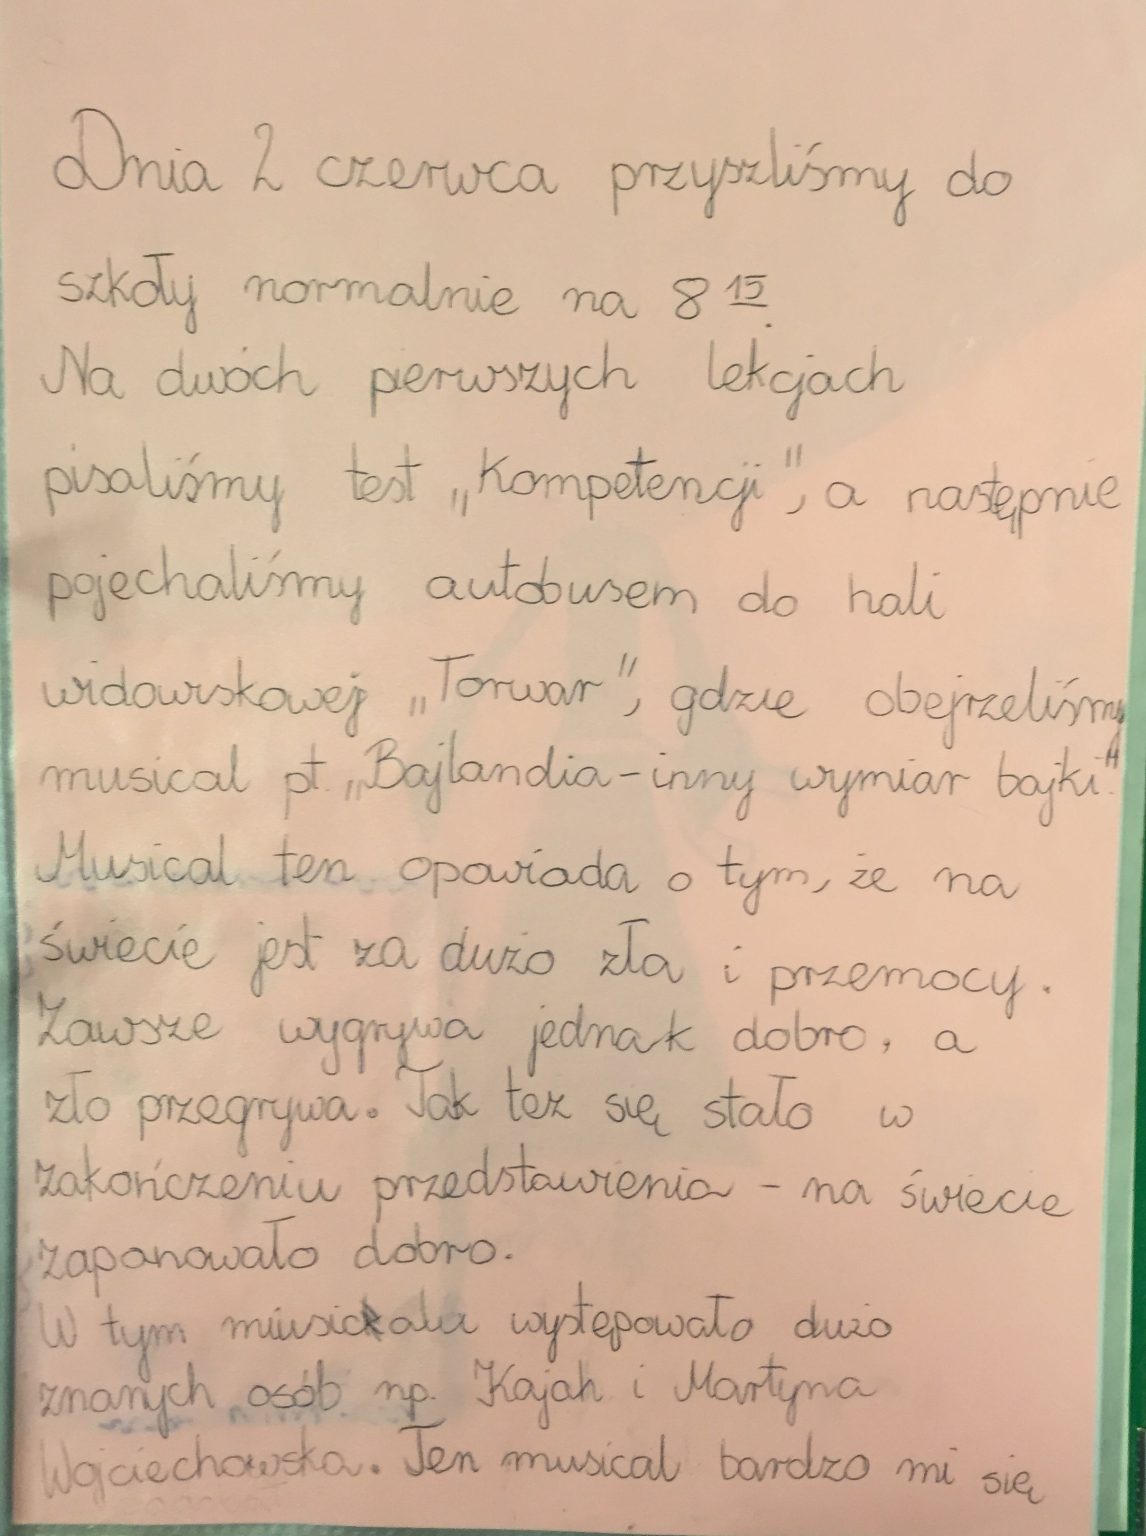 Dnia 2 czerwca przyszliśmy do
szkoły normalnie na 8 15.
Na dwóch pierwszych lekcjach
pisaliśmy test „Kompetencji", a następnie
pojechaliśmy autobusem do hali
widowiskowej „Torwar", gdzie obejrzeliśmy
musical pt. „Bajlandia - inny wymiar bajki".
Musical ten opowiada o tym, że na
świecie jest za dużo zła i przemocy.
Zawsze wygrywa jednak dobro, a
zło przegrywa. Tak też się stało w
zakończeniu przedstawienia - na świecie
zapanowało dobro.
W tym występowało dużo
znanych osób np. Kajah i Martyna
Wojciechowska. Ten musical bardzo mi się